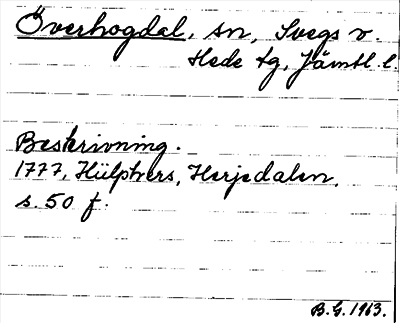 Överhogdal, sn, Svegs o.
Hede tg, Jämtl. l.
Beskrivning.
1777, Hülphers, Herjedalen,
s. 50 f.
B.G. 1963.